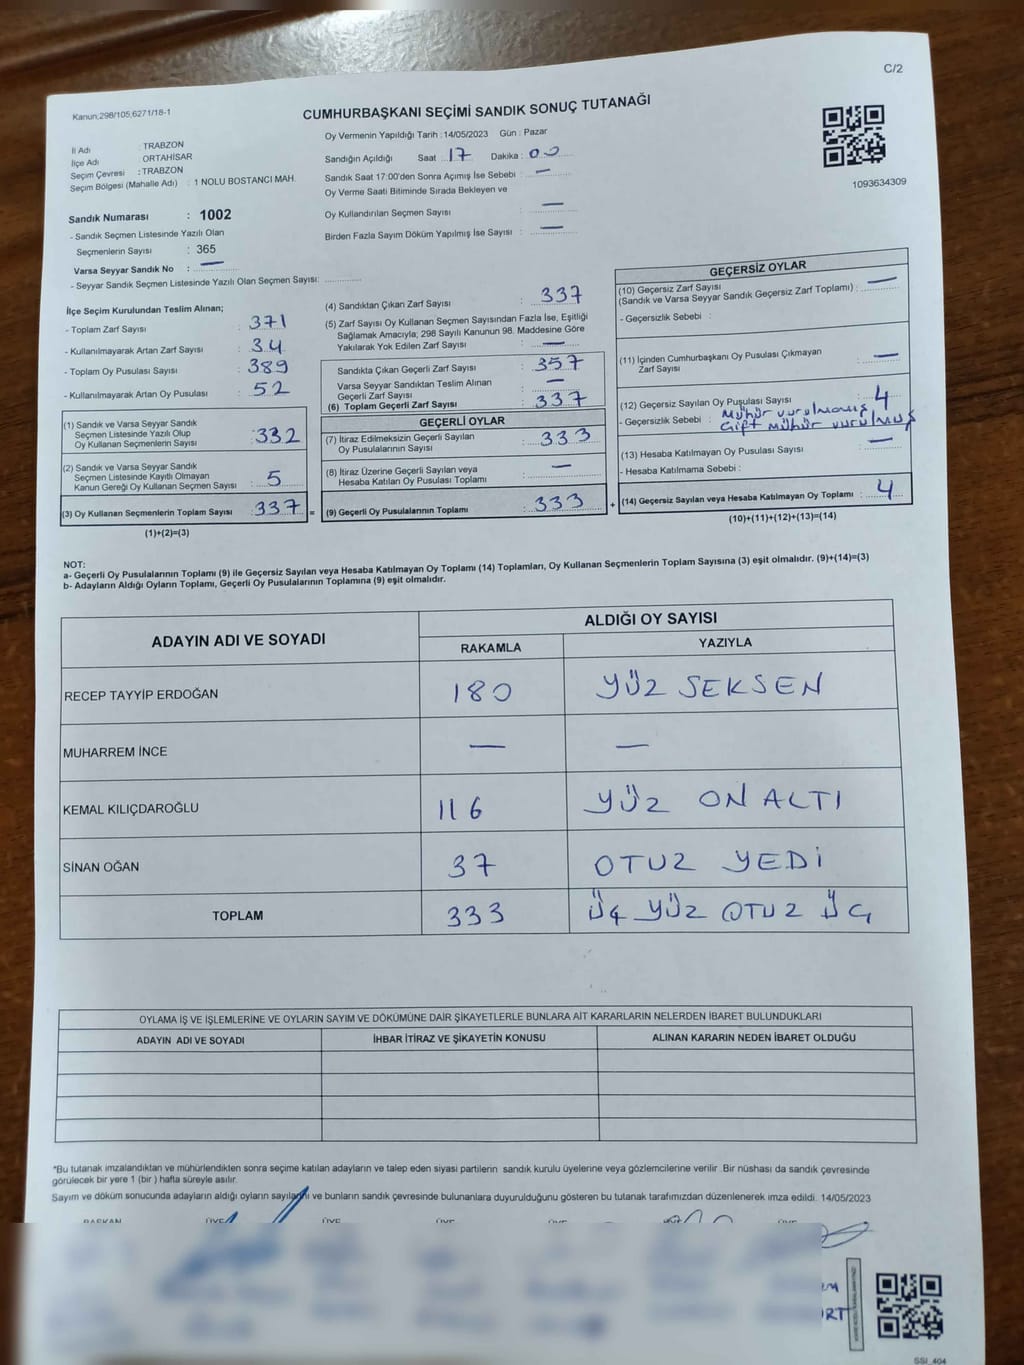 C/2
Kanun;298/105;6271/18-1
CUMHURBAŞKANI SEÇİMİ SANDIK SONUÇ TUTANAĞI
İl Adı : TRABZON
İlçe Adı ORTAHİSAR
Seçim Çevresi : TRABZON
Seçim Bölgesi (Mahalle Adı) : 1 NOLU BOSTANCI MAH.
Sandık Numarası : 1002
- Sandık Seçmen Listesinde Yazılı Olan
Seçmenlerin Sayısı : 365
Varsa Seyyar Sandık No : —
- Seyyar Sandık Seçmen Listesinde Yazılı Olan Seçmen Sayısı:
Oy Vermenin Yapıldığı Tarih : 14/05/2023 Gün : Pazar
Sandığın Açıldığı Saat 17 Dakika : 00
Sandık Saat 17:00'den Sonra Açımış İse Sebebi : —
Oy Verme Saati Bitiminde Sırada Bekleyen ve
Oy Kullandırılan Seçmen Sayısı : —
Birden Fazla Sayım Döküm Yapılmış İse Sayısı : —
1093634309
İlçe Seçim Kurulundan Teslim Alınan;
- Toplam Zarf Sayısı : 371
- Kullanılmayarak Artan Zarf Sayısı : 34
- Toplam Oy Pusulası Sayısı : 389
- Kullanılmayarak Artan Oy Pusulası : 52
(1) Sandık ve Varsa Seyyar Sandık
Seçmen Listesinde Yazılı Olup
Oy Kullanan Seçmenlerin Sayısı : 332
(2) Sandık ve Varsa Seyyar Sandık
Seçmen Listesinde Kayıtlı Olmayan
Kanun Gereği Oy Kullanan Seçmen Sayısı : 5
(3) Oy Kullanan Seçmenlerin Toplam Sayısı : 337 =
(1)+(2)=(3)
(4) Sandıktan Çıkan Zarf Sayısı : 337
(5) Zarf Sayısı Oy Kullanan Seçmen Sayısından Fazla İse, Eşitliği
Sağlamak Amacıyla; 298 Sayılı Kanunun 98. Maddesine Göre
Yakılarak Yok Edilen Zarf Sayısı : —
Sandıkta Çıkan Geçerli Zarf Sayısı : 357
Varsa Seyyar Sandıktan Teslim Alınan
Geçerli Zarf Sayısı : —
(6) Toplam Geçerli Zarf Sayısı : 337
GEÇERLİ OYLAR
(7) İtiraz Edilmeksizin Geçerli Sayılan
Oy Pusulalarının Sayısı : 333
(8) İtiraz Üzerine Geçerli Sayılan veya
Hesaba Katılan Oy Pusulası Toplamı : —
(9) Geçerli Oy Pusulalarının Toplamı : 333 +
GEÇERSİZ OYLAR
(10) Geçersiz Zarf Sayısı
(Sandık ve Varsa Seyyar Sandık Geçersiz Zarf Toplamı) : —
- Geçersizlik Sebebi :
(11) İçinden Cumhurbaşkanı Oy Pusulası Çıkmayan
Zarf Sayısı : —
(12) Geçersiz Sayılan Oy Pusulası Sayısı : 4
- Geçersizlik Sebebi : Mühür vurulmamış
Çift mühür vurulmuş
(13) Hesaba Katılmayan Oy Pusulası Sayısı : —
- Hesaba Katılmama Sebebi :
(14) Geçersiz Sayılan veya Hesaba Katılmayan Oy Toplamı : 4
(10)+(11)+(12)+(13)=(14)
NOT:
a- Geçerli Oy Pusulalarının Toplamı (9) ile Geçersiz Sayılan veya Hesaba Katılmayan Oy Toplamı (14) Toplamları, Oy Kullanan Seçmenlerin Toplam Sayısına (3) eşit olmalıdır. (9)+(14)=(3)
b- Adayların Aldığı Oyların Toplamı, Geçerli Oy Pusulalarının Toplamına (9) eşit olmalıdır.
ADAYIN ADI VE SOYADI ALDIĞI OY SAYISI
RAKAMLA YAZIYLA
RECEP TAYYİP ERDOĞAN 180 YÜZ SEKSEN
MUHARREM İNCE — —
KEMAL KILIÇDAROĞLU 116 YÜZ ON ALTI
SİNAN OĞAN 37 OTUZ YEDİ
TOPLAM 333 ÜÇ YÜZ OTUZ ÜÇ
OYLAMA İŞ VE İŞLEMLERİNE VE OYLARIN SAYIM VE DÖKÜMÜNE DAİR ŞİKAYETLERLE BUNLARA AİT KARARLARIN NELERDEN İBARET BULUNDUKLARI
ADAYIN ADI VE SOYADI İHBAR İTİRAZ VE ŞİKAYETİN KONUSU ALINAN KARARIN NEDEN İBARET OLDUĞU
*Bu tutanak imzalandıktan ve mühürlendikten sonra seçime katılan adayların ve talep eden siyasi partilerin sandık kurulu üyelerine veya gözlemcilerine verilir. Bir nüshası da sandık çevresinde
görülecek bir yere 1 (bir ) hafta süreyle asılır.
Sayım ve döküm sonucunda adayların aldığı oyların sayılarını ve bunların sandık çevresinde bulunanlara duyurulduğunu gösteren bu tutanak tarafımızdan düzenlenerek imza edildi. 14/05/2023
BAŞKAN ÜYE ÜYE ÜYE ÜYE ÜYE
SSI_404